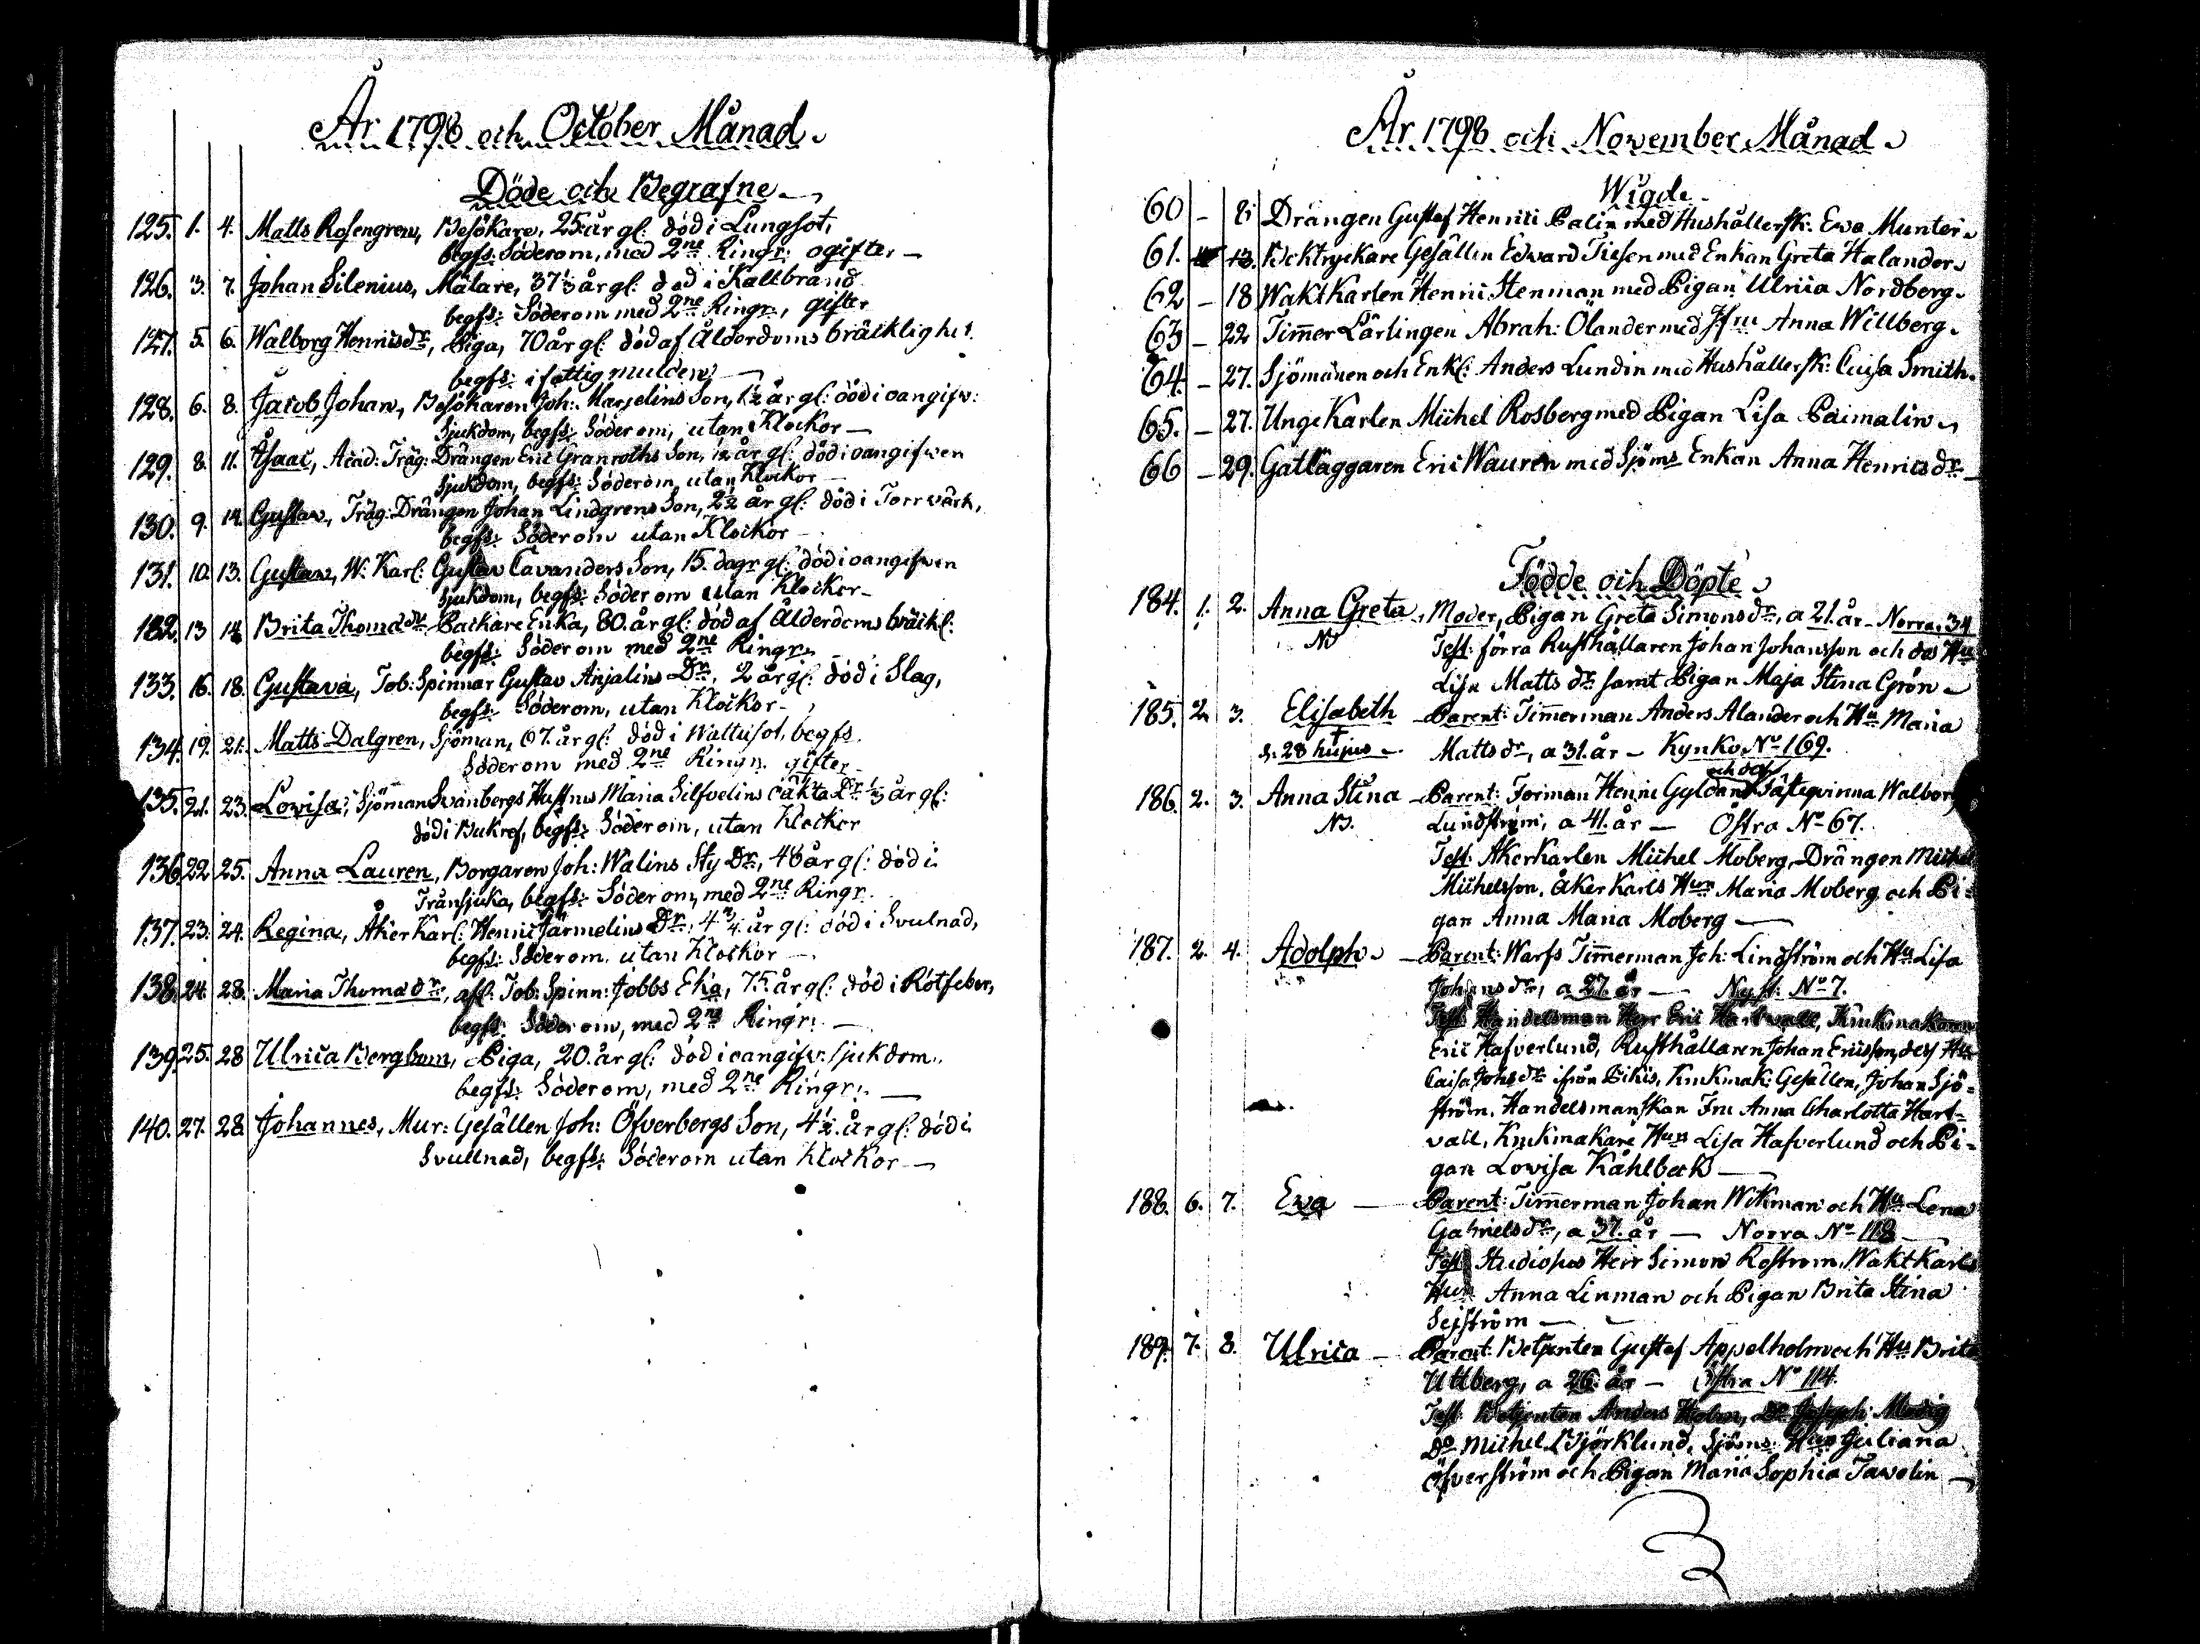 År 1798 och October Månad.
Döde och Begrafne.
125. 1. 4. Matts Rosengren, Besökare, 25. år gl: död i Lungsot,
begfs: Söderom, med 2ne Ringr: ogifter —
126. 3. 7. Johan Silenius, Målare, 37 1/3 år gl: död i Kallbrand
begfs: Söderom med 2ne Ringr, gifter
127. 5. 6. Walborg Henricsdr, Piga, 70 år gl: död af Ålderdoms bräcklighet.
begfs: i fattig mulden —
128. 6. 8. Jacob Johan, Besökaren Joh: Marjelins Son, 1 1/2 år gl: död i oangifv:
Sjukdom, begfs: Söderom, utan Klockor —
129. 8. 11. Isaac, Acad: Träg: Drängen Eric Granroths Son, 1/2 år gl: död i oangifwen
Sjukdom, begfs: Söderom utan Klockor —
130. 9. 14. Gustav, Träg: Drängen Johan Lindgrens Son, 2 1/2 år gl: död i Torrvärk,
begfs: Söderom utan Klockor —
131. 10. 13. Gustav, W: Karl: Gustav Cavanders Son, 15. dagr gl: död i oangifwen
Sjukdom, begfs: Söderom utan Klockor —
132. 13 14 Brita Thomædr Backare Enka, 80. år gl: död af Ålderdoms bräckl:
begfs: Söderom med 2ne Ringr.
133. 16. 18. Gustava, Tob: Spinnar Gustav Anjalins Dr, 2 år gl: död i Slag,
begfs: Söderom, utan Klockor —
134. 19. 21. Matts Dalgren, Sjöman, 67. år gl: död i Wattusot, begfs.
Söderom med 2ne Ringr. gifter —
135. 21. 23. Lovisa, Sjöman Svanbergs Hustrus Maria Silfvelins oäkta Dr 1/3 år gl:
död i Bukref, begfs: Söderom, utan Klockor
136. 22 25. Anna Lauren, Borgaren Joh: Wälins Sty Dr, 46 år gl: död i
Trånsjuka, begfs: Söderom, med 2ne Ringr.
137. 23. 24. Regina, Åker Karl: Henric Järmelins Dr, 4 3/4. år gl: död i Svulnad,
begfs: Söderom. utan Klockor —
138. 24. 28. Maria Thomædr, afl: Tob: Spinn: Jobbs Eka, 75. år gl: död i Rötfeber,
begfs: Söderom, med 2ne Ringr: —
139. 25. 28 Ulrica Bergbom, Piga, 20. år gl: död i oangifv: sjukdom.
begfs: Söderom, med 2ne Ringr: —
140. 27. 28 Johannes, Mur: Gesällen Joh: Öfverbergs Son, 4 1/2. år gl: död i
Svullnad, begfs: Söderom utan Klockor —
År 1798 och November Månad.
Wigde.
60 – 8. Drängen Gustaf Henric Palin med Hushållersk: Ewa Munter.
61. 13. Boktryckare Gesällen Edward Tiesen med Enkan Greta Halander.
62 – 18 Wakt Karlen Henric Henman med Pigan Ulrica Nordberg.
63 – 22 Timmer Lärlingen Abrah: Ölander med Jfru Anna Willberg.
64. – 27. Sjömannen och Enkl: Anders Lundin med Hushållersk: Caisa Smith.
65. – 27. Unge Karlen Michel Rosberg med Pigan Lisa Paimalin
66 – 29. Gatläggaren Eric Wauren med Sjöms Enkan Anna Henricsdr —
Födde och Döpte
184. 1. 2. Anna Greta, Moder, Pigan Greta Simonsdr, a 21. år – Norra, 34
Test: förra Rusthållaren Johan Johansson och des Hu
Lisa Mattsdr samt Pigan Maja Stina Grön —
185. 2. 3. Elisabeth – Parent: Timmerman Anders Alander och Hu Maria
† d. 28 hujus – Mattsdr, a 31. år – Kyrko No 169.
186. 2. 3. Anna Stina – Parent: Forman Henric Gyldan och des Fästeqvinna Walborg
Lundström, a 41. år — Östra No 67.
Test: Åkerkarlen Michel Moberg, Drängen Michel
Michelsson, Åker Karls Hun Maria Moberg och Pi-
gan Anna Maria Moberg —
187. 2. 4. Adolph. – Parent: Warfs Timmerman Joh: Lindström och Hu Lisa
Johansdr, a 27. år — Nyst: No 7.
Test: Handelsman Herr Eric Hartwall, Krukmakaren
Eric Hafverlund, Rusthållaren Johan Ericsson, des Hu
Caisa Johsdr ifrån Pikis, Krukmak: Gesällen, Johan Sjö-
ström. Handelsmanskan Fru Anna Charlotta Hart-
vall, Krukmakare Hun Lisa Hafverlund och Pi-
gan Lovisa Kåhlbeck —
188. 6. 7. Ewa — Parent: Timmerman Johan Wikman och Hu Lena
Gabrielsdr, a 37. år — Norra No 118 —
Test Studiosus Herr Simon Rostrom, Wakt Karls
Hun Anna Linman och Pigan Brita Stina
Sejström —
189. 7. 8. Ulrica – Parent: Betjenten Gustaf Appelholm och Hu Brita
Uttberg, a 26. år — Östra No 114.
Test: Betjenten Anders Holm, Do Joseph Modig
Do Michel Björklund, Sjöms Hun Juliana
Öfverström och Pigan Maria Sophia Tavolin —